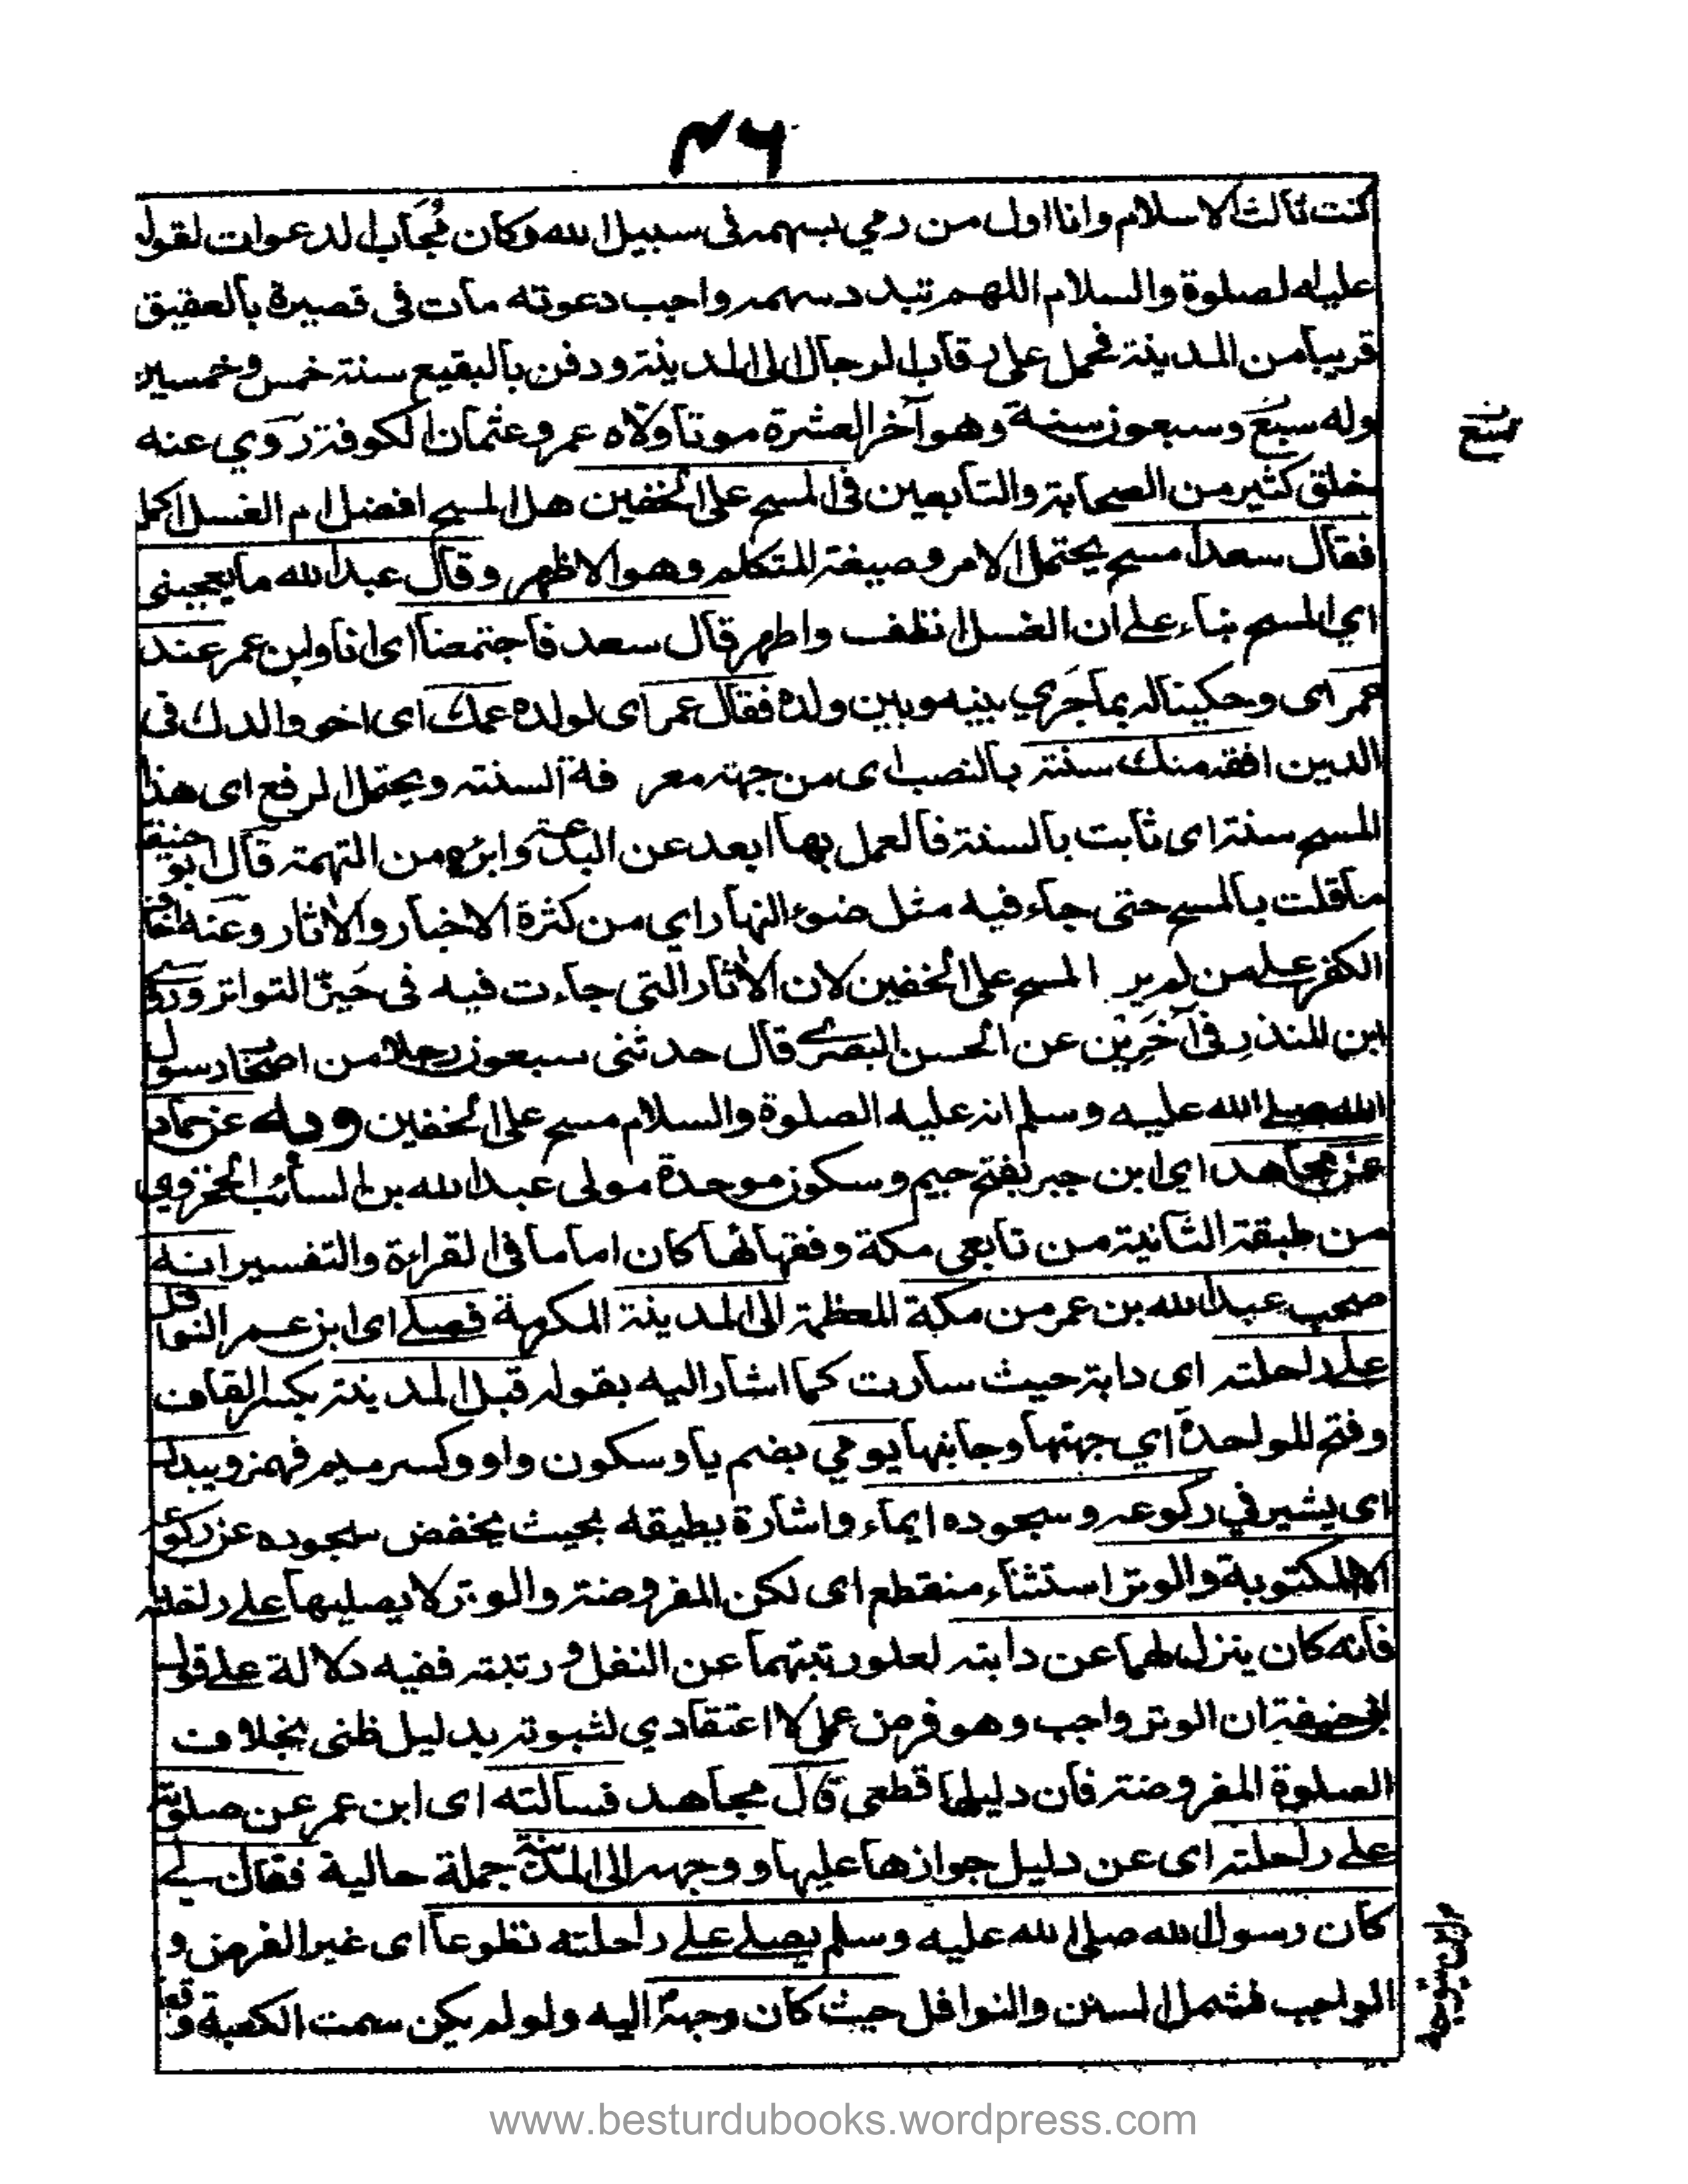 ٤٦
كنت ثالث الاسلام وانا اول من رمي بسهم فى سبيل الله وكان مُجاب الدعوات لقول
عليه الصلوة والسلام اللهم سدد سهمه واجب دعوته مات فى قصيرة بالعقيق
قريبا من المدينة فحمل على رقاب الرجال الى المدينة ودفن بالبقيع سنة خمس وخمسين
وله سبع وسبعون سنة وهو آخر العشرة موتا ولاه عمر وعثمان الكوفة روي عنه
خلق كثير من الصحابة والتابعين فى المسح على الخفين هل المسح افضل ام الغسل اكمل
فقال سعد امسح يحتمل الامر وصيغة المتكلم وهو الاظهر وقال عبد الله ما يعجبنى
اي المسح بناء على ان الغسل انظف واطهر قال سعد فاجتمعنا اى انا وابن عمر عند
عمر اى وحكينا له بما جَري بينه وبين ولده فقال عمر اى لولده عمك اى اخو والدك فى
الدين افقه منك سنة بالنصب اى من جهة معرفة السنة ويحتمل الرفع اى هذا
المسح سنة اى ثابت بالسنة فالعمل بها ابعد عن البدعة وابرء من التهمة قال ابو حنيفة
ما قلت بالمسح حتى جاء فيه مثل ضوء النهار اي من كثرة الاخبار والاثار وعنه اخاف
الكفر على من لم ير المسح على الخفين لان الاثار التى جاءت فيه فى حَيّز التواتر وروى
ابن المنذر فى آخَرِين عن الحسن البصرى قال حدثنى سبعون رجلا من اصحاب رسول
الله صلى الله عليه وسلم انه عليه الصلوة والسلام مسح على الخفين وبه عن حماد
عن مجاهد اي ابن جبر بفتح جيم وسكون موحدة مولى عبد الله بن السائب المخزومي
من طبقة الثانية من تابعى مكة وفقهائها كان اماما فى القراءة والتفسير انه
صحب عبد الله بن عمر من مكة المعظمة الى المدينة المكرمة فصلى اى ابن عمر النوافل
على راحلته اى دابته حيث سارت كما اشار اليه بقوله قبل المدينة بكسر القاف
وفتح للواحدة اي جهتها وجانبها يومي بضم يا وسكون واو وكسر ميم فهمز ويبدل
اى يشير في ركوعه وسجوده ايماء واشارة يطيقه بحيث يخفض سجوده عن ركوعه
الا المكتوبة والوتر استثناء منقطع اى لكن المفروضة والوتر لا يصليها على راحلته
فانه كان ينزل لهما عن دابته لعلو رتبتهما عن النفل ورتبته ففيه دلالة على قول
ابى حنيفة ان الوتر واجب وهو فرض عملى لا اعتقادي لثبوته بدليل ظنى بخلاف
الصلوة المفروضة فان دليلها قطعى قال مجاهد فسالته اى ابن عمر عن صلوته
على راحلته اى عن دليل جوازها عليها ووجهه الى المدينة جملة حالية فقال لى
كان رسول الله صلى الله عليه وسلم يصلى على راحلته تطوعا اى غير الفرض و
الواجب فشمل السنن والنوافل حيث كان وجهه اليه ولو لم يكن سمت الكعبة و
تسع
www.besturdubooks.wordpress.com